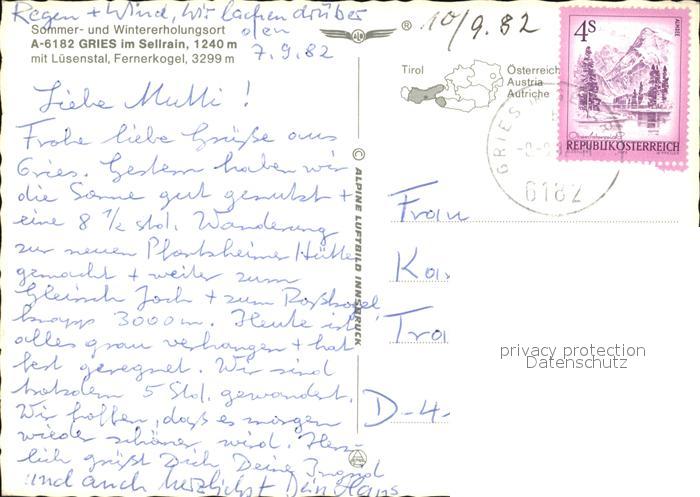 Regen + Wind, wir lachen drüber
Sommer- und Wintererholungsort
A-6182 GRIES im Sellrain, 1240 m
mit Lüsenstal, Fernerkogel, 3299 m
7.9.82
Liebe Mutti!
Frohe liebe Grüße aus
Gries. Gestern haben wir
die Sonne gut genutzt +
eine 8 1/2 Std. Wanderung
zur neuen Pforzheimer Hütte
gemacht + weiter zum
Gleirsch Joch + zum Roßkogel,
knapp 3000 m. Heute ist
alles grau verhangen + hat
fest geregnet. Wir sind
trotzdem 5 Std. gewandert.
Wir hoffen, daß es morgen
wieder schöner wird. Herz-
lich grüßt Dich Deine
und auch herzlichst Dein Hans
®
10/9.82
Tirol
Österreich
Austria
Autriche
© ALPINE LUFTBILD INNSBRUCK
4 S
ALMSEE
Oberösterreich
REPUBLIK ÖSTERREICH
GRIES
6182
Frau
Ka
Tra
D-4
privacy protection
Datenschutz